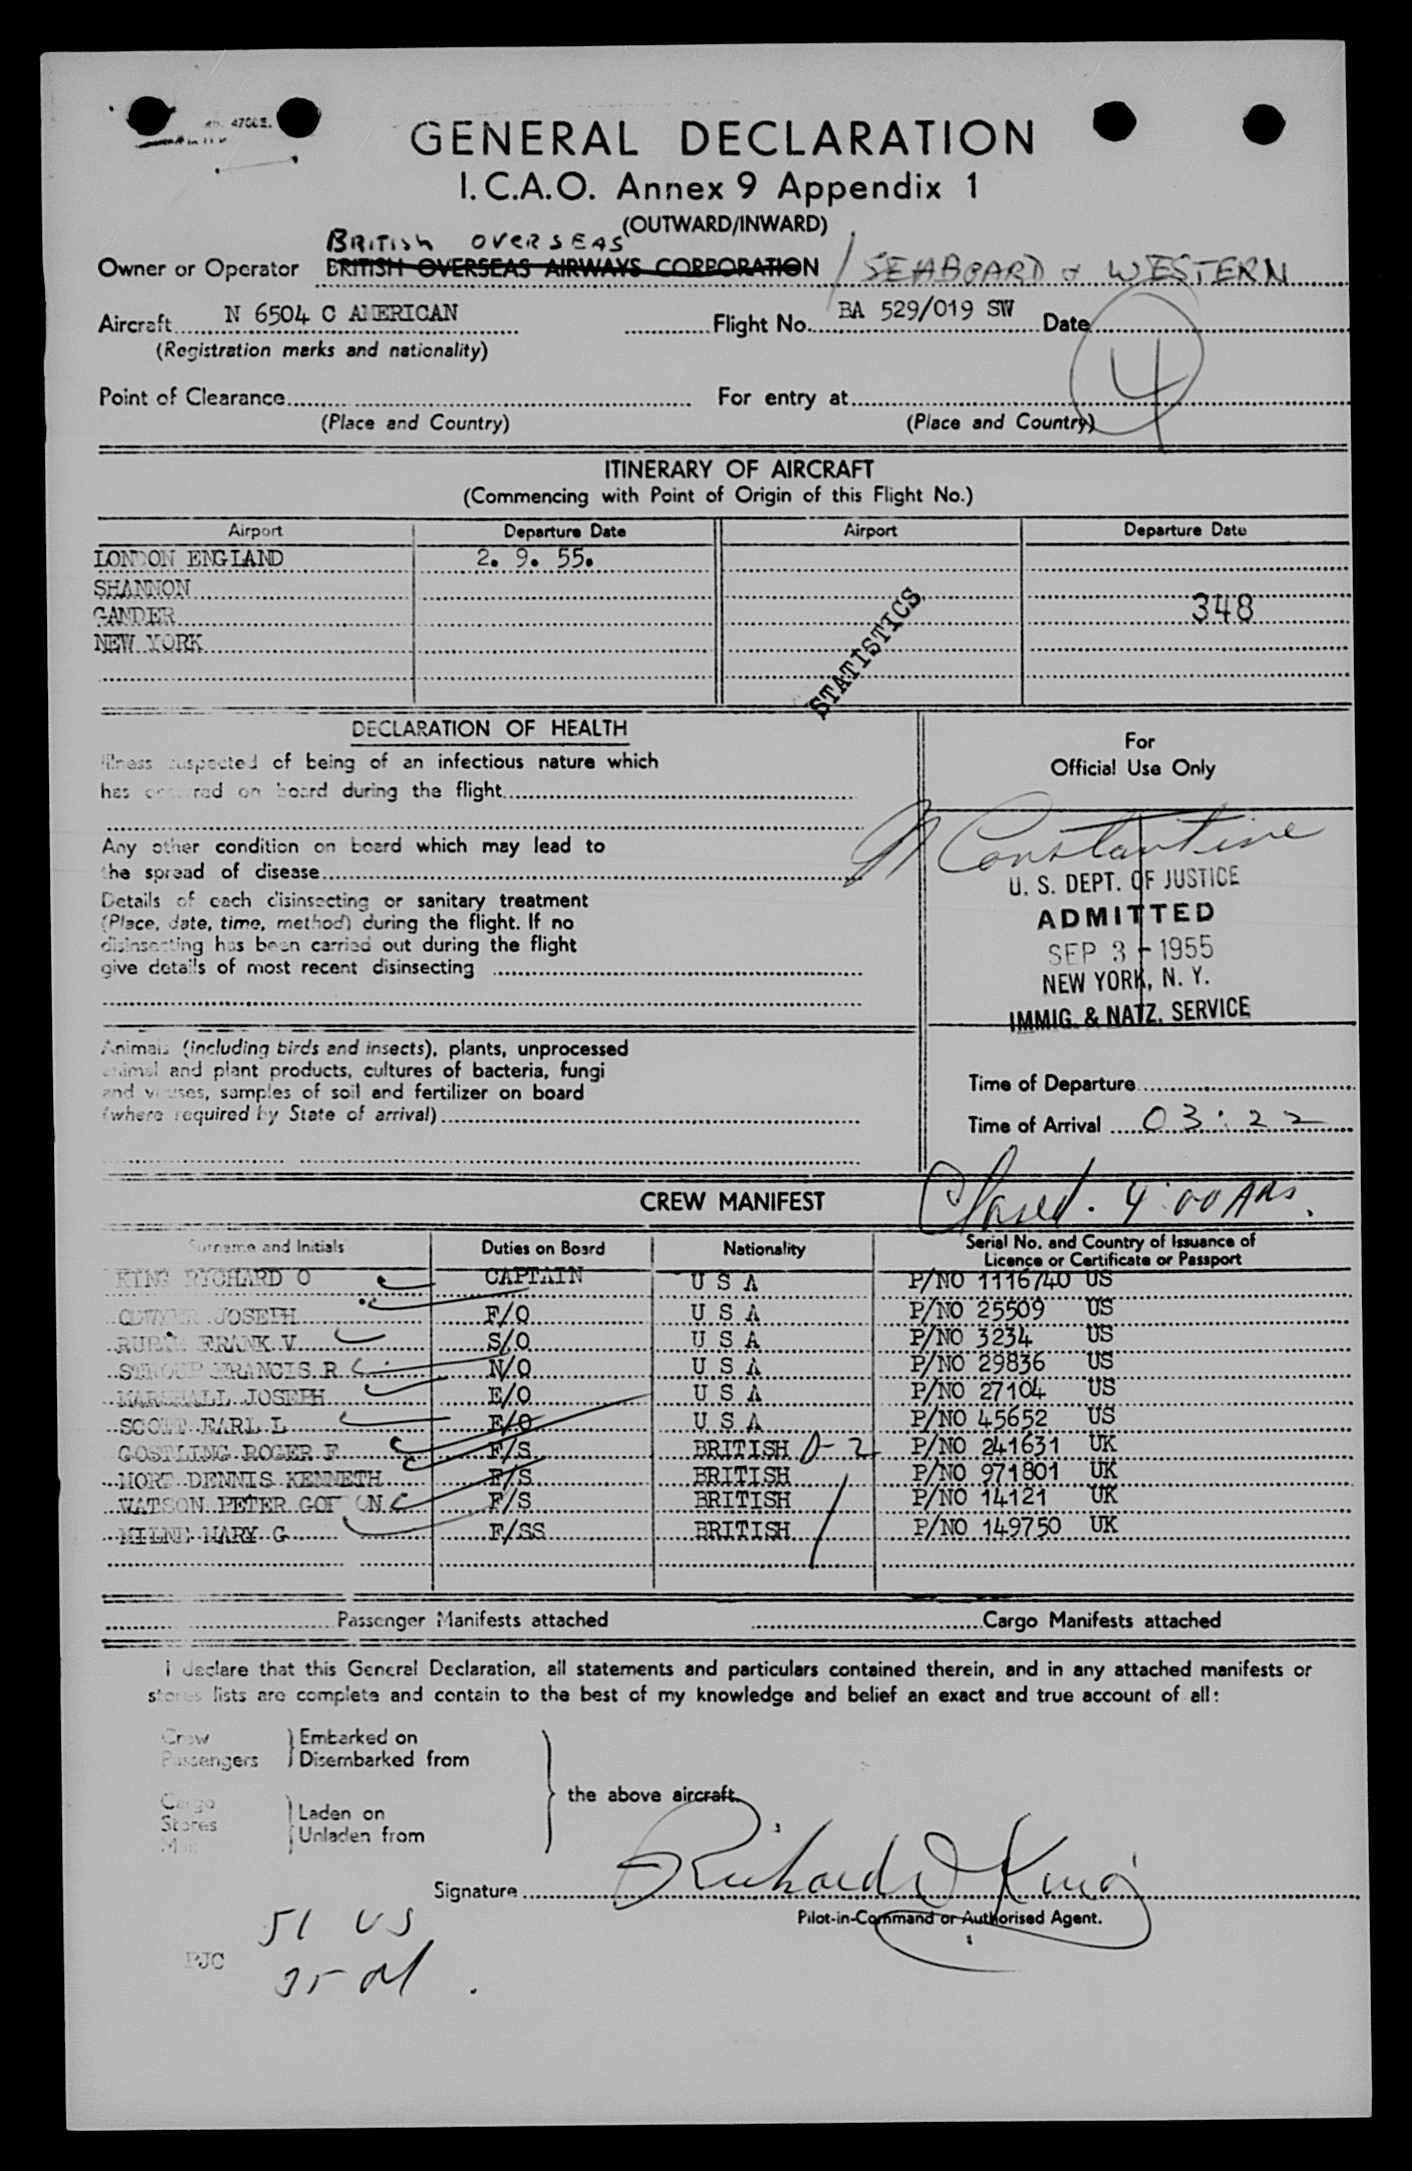 GENERAL DECLARATION
I.C.A.O. Annex 9 Appendix 1
(OUTWARD/INWARD)
BRITISH OVERSEAS
Owner or Operator BRITISH OVERSEAS AIRWAYS CORPORATION / SEABOARD & WESTERN
Aircraft N 6504 C AMERICAN Flight No. BA 529/019 SW Date
(Registration marks and nationality)
4
Point of Clearance For entry at
(Place and Country) (Place and Country)
ITINERARY OF AIRCRAFT
(Commencing with Point of Origin of this Flight No.)
Airport Departure Date Airport Departure Date
LONDON ENGLAND 2. 9. 55.
SHANNON
GANDER 348
NEW YORK
STATISTICS
DECLARATION OF HEALTH
Illness suspected of being of an infectious nature which
has occurred on board during the flight
Any other condition on board which may lead to
the spread of disease
Details of each disinsecting or sanitary treatment
(Place, date, time, method) during the flight. If no
disinsecting has been carried out during the flight
give details of most recent disinsecting
For
Official Use Only
Constantine
U. S. DEPT. OF JUSTICE
ADMITTED
SEP 3 - 1955
NEW YORK, N. Y.
IMMIG. & NATZ. SERVICE
Animals (including birds and insects), plants, unprocessed
animal and plant products, cultures of bacteria, fungi
and viruses, samples of soil and fertilizer on board
(where required by State of arrival)
Time of Departure
Time of Arrival 03:22
CREW MANIFEST Closed. 4:00 AM.
Surname and Initials Duties on Board Nationality Serial No. and Country of Issuance of
Licence or Certificate or Passport
KING RICHARD O CAPTAIN U S A P/NO 1116740 US
JOSEPH F/O U S A P/NO 25509 US
FRANK V S/O U S A P/NO 3234 US
FRANCIS R N/O U S A P/NO 29836 US
MARSHALL JOSEPH E/O U S A P/NO 27104 US
SCOTT EARL L E/O U S A P/NO 45652 US
GOSTLING ROGER F F/S BRITISH D-2 P/NO 241631 UK
MORT DENNIS KENNETH F/S BRITISH P/NO 971801 UK
WATSON PETER GORDON F/S BRITISH P/NO 14121 UK
MILNE MARY G F/SS BRITISH P/NO 149750 UK
Passenger Manifests attached Cargo Manifests attached
I declare that this General Declaration, all statements and particulars contained therein, and in any attached manifests or
stores lists are complete and contain to the best of my knowledge and belief an exact and true account of all:
Crew Embarked on
Passengers Disembarked from
the above aircraft.
Cargo Laden on
Stores Unladen from
Mail
Signature Richard O King
Pilot-in-Command or Authorised Agent.
51 US
PJC